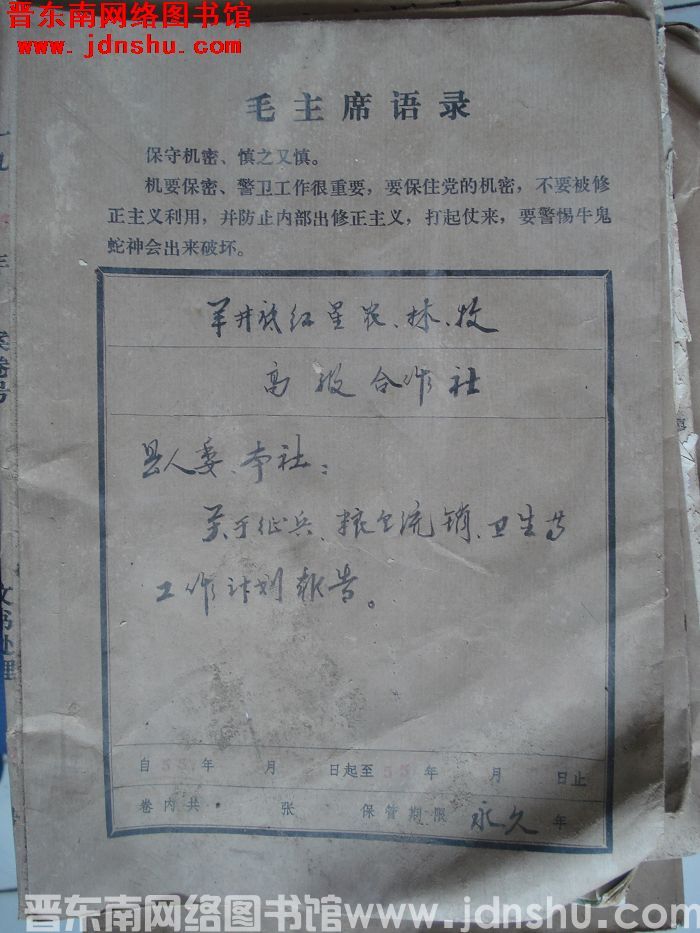 晋东南网络图书馆
www.jdnshu.com
毛主席语录
保守机密、慎之又慎。
机要保密、警卫工作很重要，要保住党的机密，不要被修
正主义利用，并防止内部出修正主义，打起仗来，要警惕牛鬼
蛇神会出来破坏。
羊井底红星农、林、牧
高级合作社
县人委、本社：
关于征兵、粮食统销、卫生等
工作计划报告。
自55年 月 日起至55年 月 日止
卷内共 张 保管期限 永久 年
案卷号
文书处理
晋东南网络图书馆www.jdnshu.com